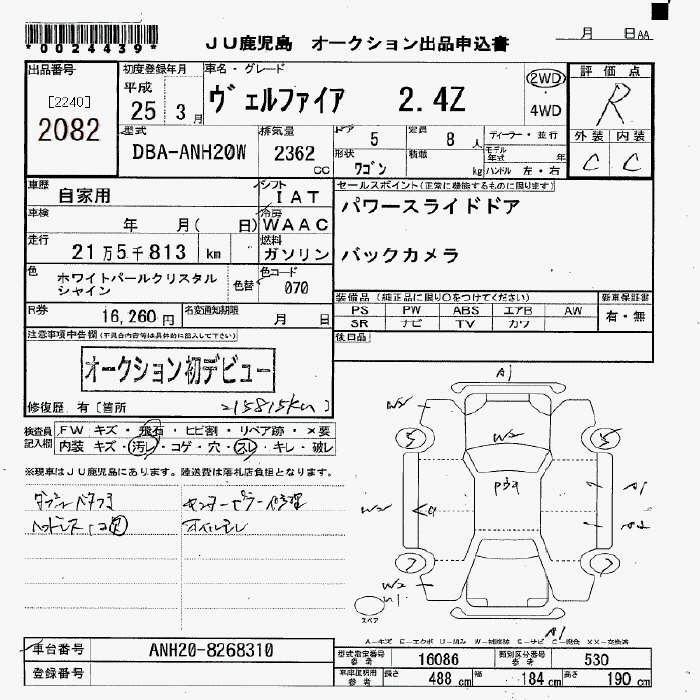 *0024439*
JU鹿児島 オークション出品申込書
月 日AA
出品番号
[2240]
2082
初度登録年月
平成
25 3月
車名・グレード
ヴェルファイア 2.4Z
2WD
4WD
評価点
R
外装 内装
C C
型式
DBA-ANH20W
排気量
2362 CC
ドア
5
定員
8 人
形状
ワゴン
積載
kg
ディーラー・並行
モデル年式 年
ハンドル 左・右
車歴
自家用
シフト
IAT
車検
年 月( 日)
冷房
WAAC
走行
21万5千813 km
燃料
ガソリン
色
ホワイトパールクリスタル
シャイン
色替
色コード
070
R券
16,260円
名変通知期限
月 日
セールスポイント(正常に機能するものに限ります)
パワースライドドア
バックカメラ
装備品(純正品に限り○をつけてください)
新車保証書
PS PW ABS エアB AW
SR ナビ TV カワ
有・無
後日品
注意事項申告欄(不具合内容等は具体的に記入して下さい)
オークション初デビュー
修復歴.有[箇所
215815km]
検査員
記入欄
FW キズ・飛石・ヒビ割・リペア跡・×要
内装 キズ・汚レ・コゲ・穴・スレ・キレ・破レ
※現車はJU鹿児島にあります。陸送費は落札店負担となります。
センターピラー修理
オイルモレ
A1
W2
W2
5
5
P3a
A1
W2
A2
7
7
W2
U1
スペア
A1
A-キズ E-エクボ U-凹み W-補修跡 S-サビ C-腐食 XX-交換済
車台番号
ANH20-8268310
登録番号
型式指定番号
参考
16086
類別区分番号
参考
530
車庫証明用
参考
長さ
488 cm
幅
184 cm
高さ
190 cm